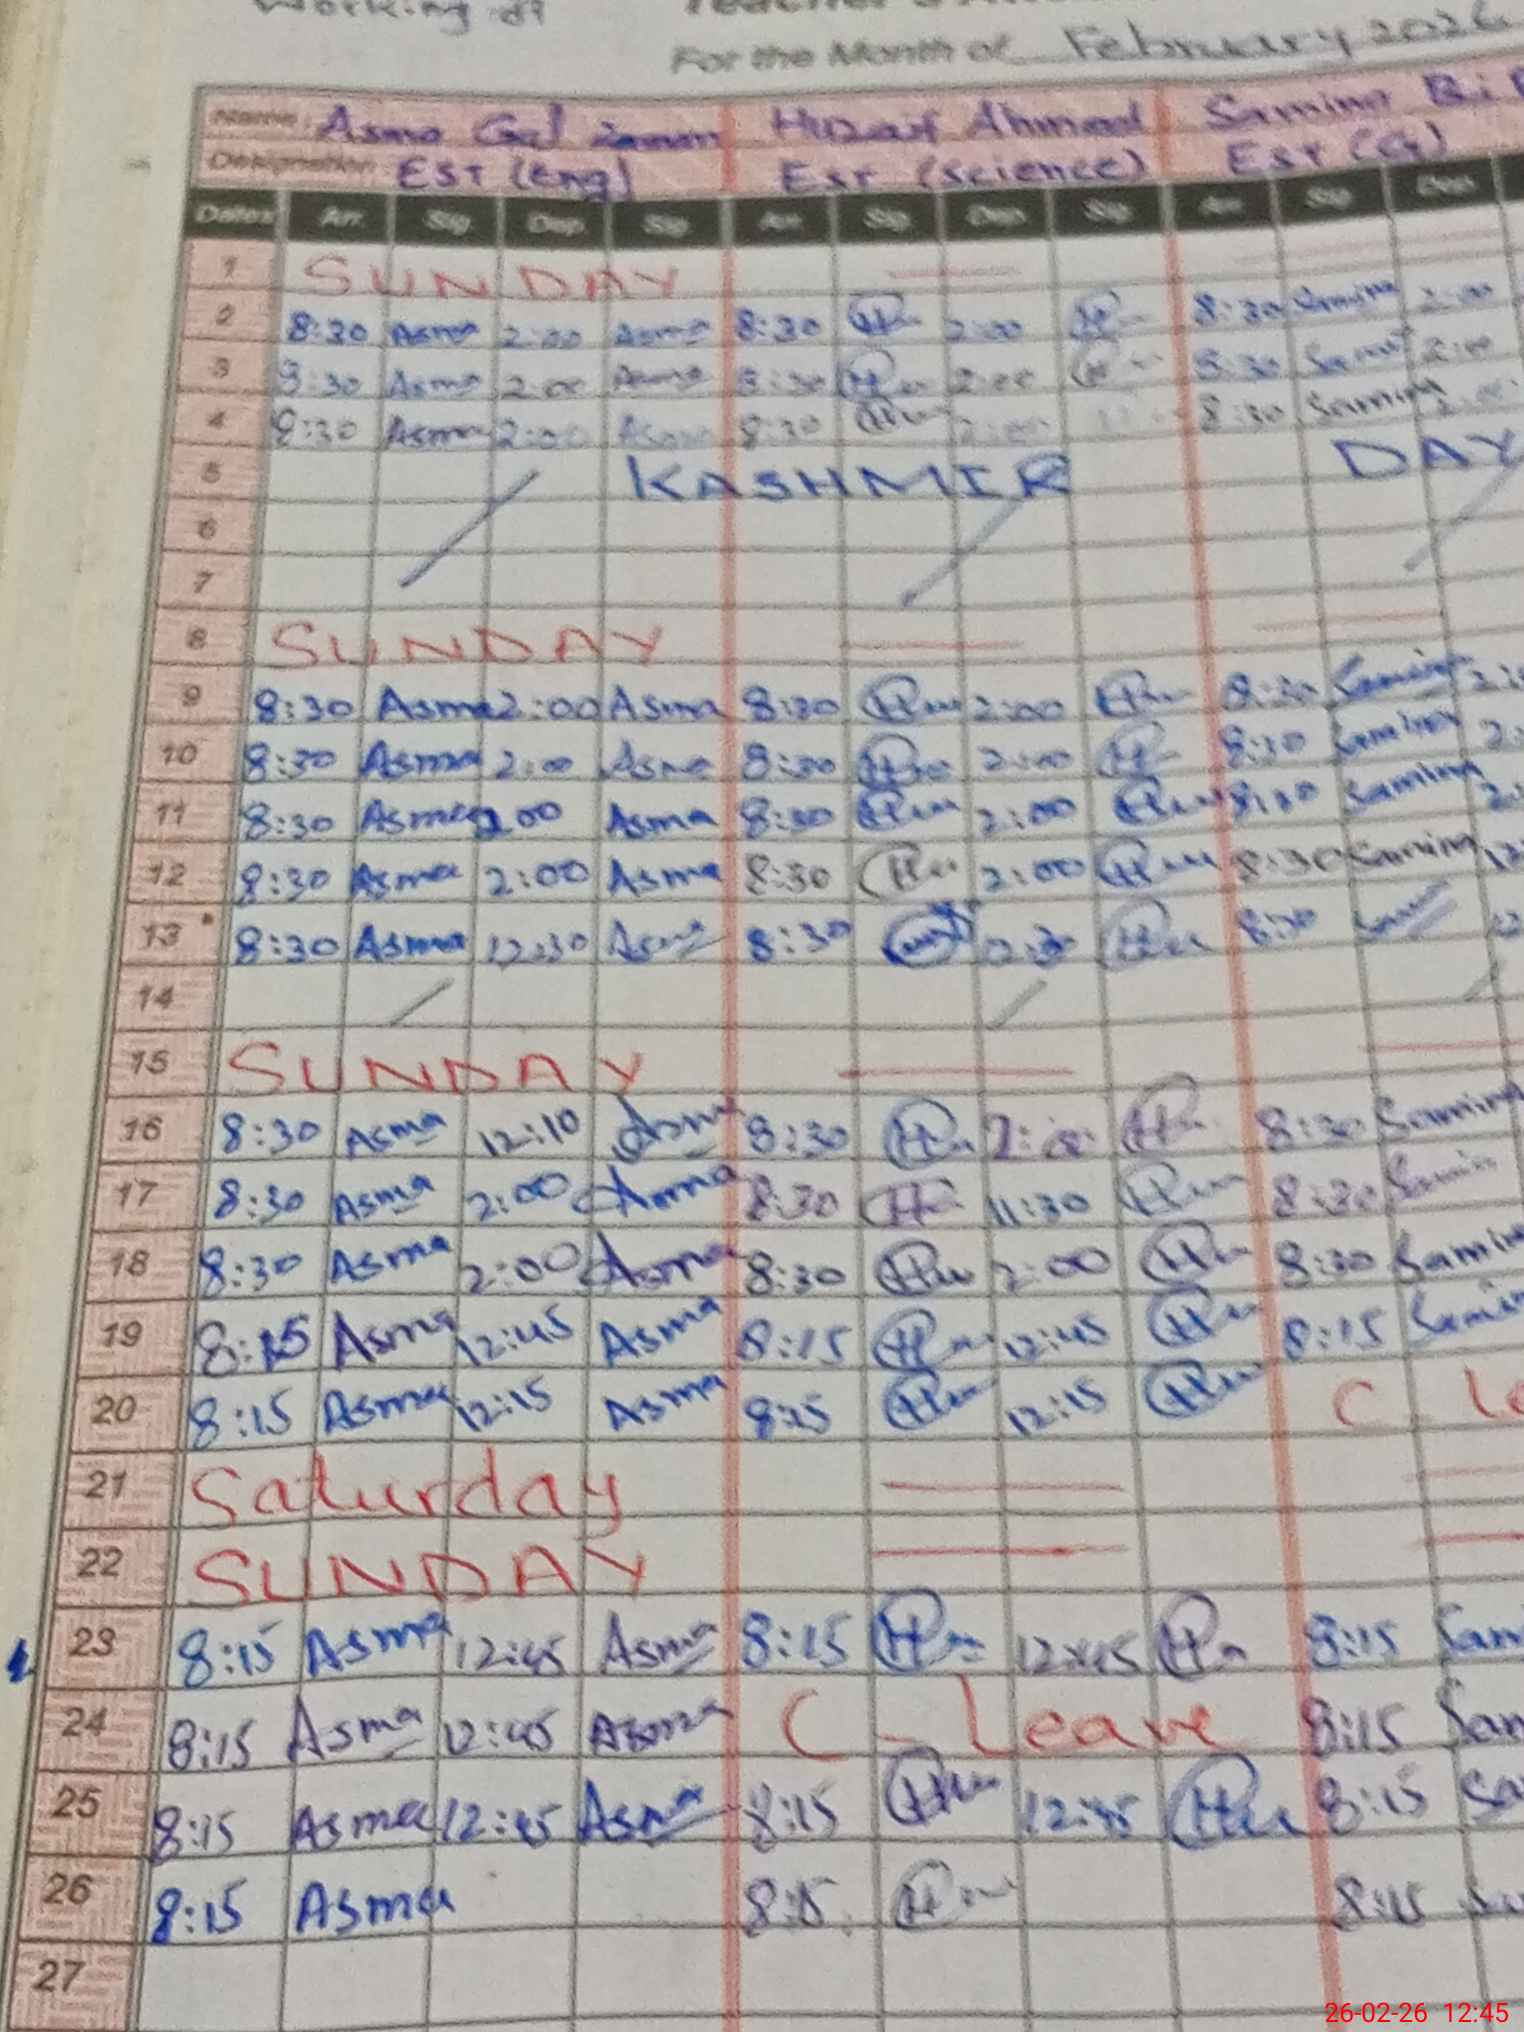 Working at
For the Month of February 2026
Name: Asma Gul Zaman Huzaif Ahmad Samina Bi
Designation: EST (Eng) Est (Science) Est (
Dates Arr. Sig. Dep. Sig. Arr. Sig. Dep. Sig. Arr. Sig. Dep.
1 SUNDAY
2 8:30 Asma 2:00 Asma 8:30 2:00 8:30 Samina 2:00
3 8:30 Asma 2:00 Asma 8:30 2:00 8:30 Samina 2:00
4 8:30 Asma 2:00 Asma 8:30 2:00 8:30 Samina 2:00
5 KASHMIR DAY
6
7
8 SUNDAY
9 8:30 Asma 2:00 Asma 8:30 2:00 8:30 Samina 2:
10 8:30 Asma 2:00 Asma 8:30 2:00 8:30 Samina 2:
11 8:30 Asma 2:00 Asma 8:30 2:00 8:30 Samina 2:
12 8:30 Asma 2:00 Asma 8:30 2:00 8:30 Samina 12
13 8:30 Asma 12:30 Asma 8:30 12:30 8:30
14
15 SUNDAY
16 8:30 Asma 12:10 Asma 8:30 8:30 Samina
17 8:30 Asma 2:00 Asma 8:30 11:30 8:30 Samin
18 8:30 Asma 2:00 Asma 8:30 2:00 8:30 Samina
19 8:15 Asma 12:45 Asma 8:15 12:45 8:15 Samin
20 8:15 Asma 12:15 Asma 8:15 12:15 C le
21 Saturday
22 SUNDAY
23 8:15 Asma 12:45 Asma 8:15 12:45 8:15 Sam
24 8:15 Asma 12:45 Asma C-Leave 8:15 Sam
25 8:15 Asma 12:45 Asma 8:15 12:45 8:15 Sa
26 8:15 Asma 8:15 8:15 Sa
27
26-02-26 12:45